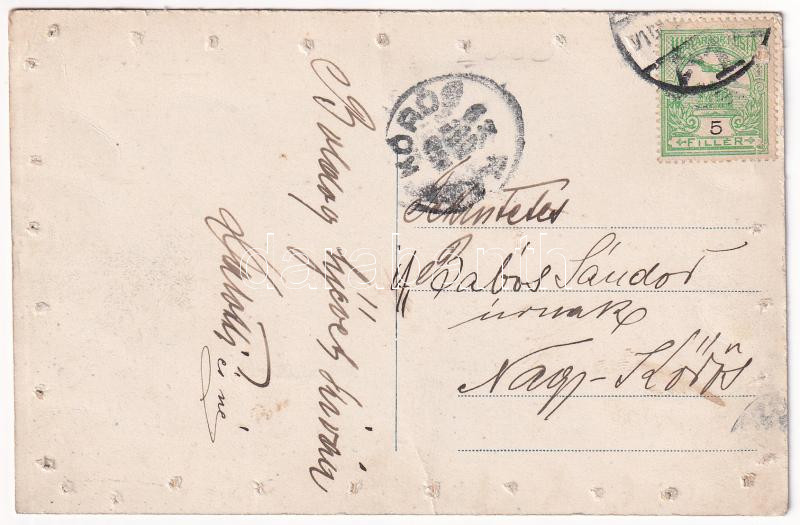 Boldog újévet kíván
és né
KŐRÖS
MAGYAR KIR. POSTA
5
FILLÉR
Tekintetes
Babós Sándor
úrnak
Nagy-Kőrös
darabanth